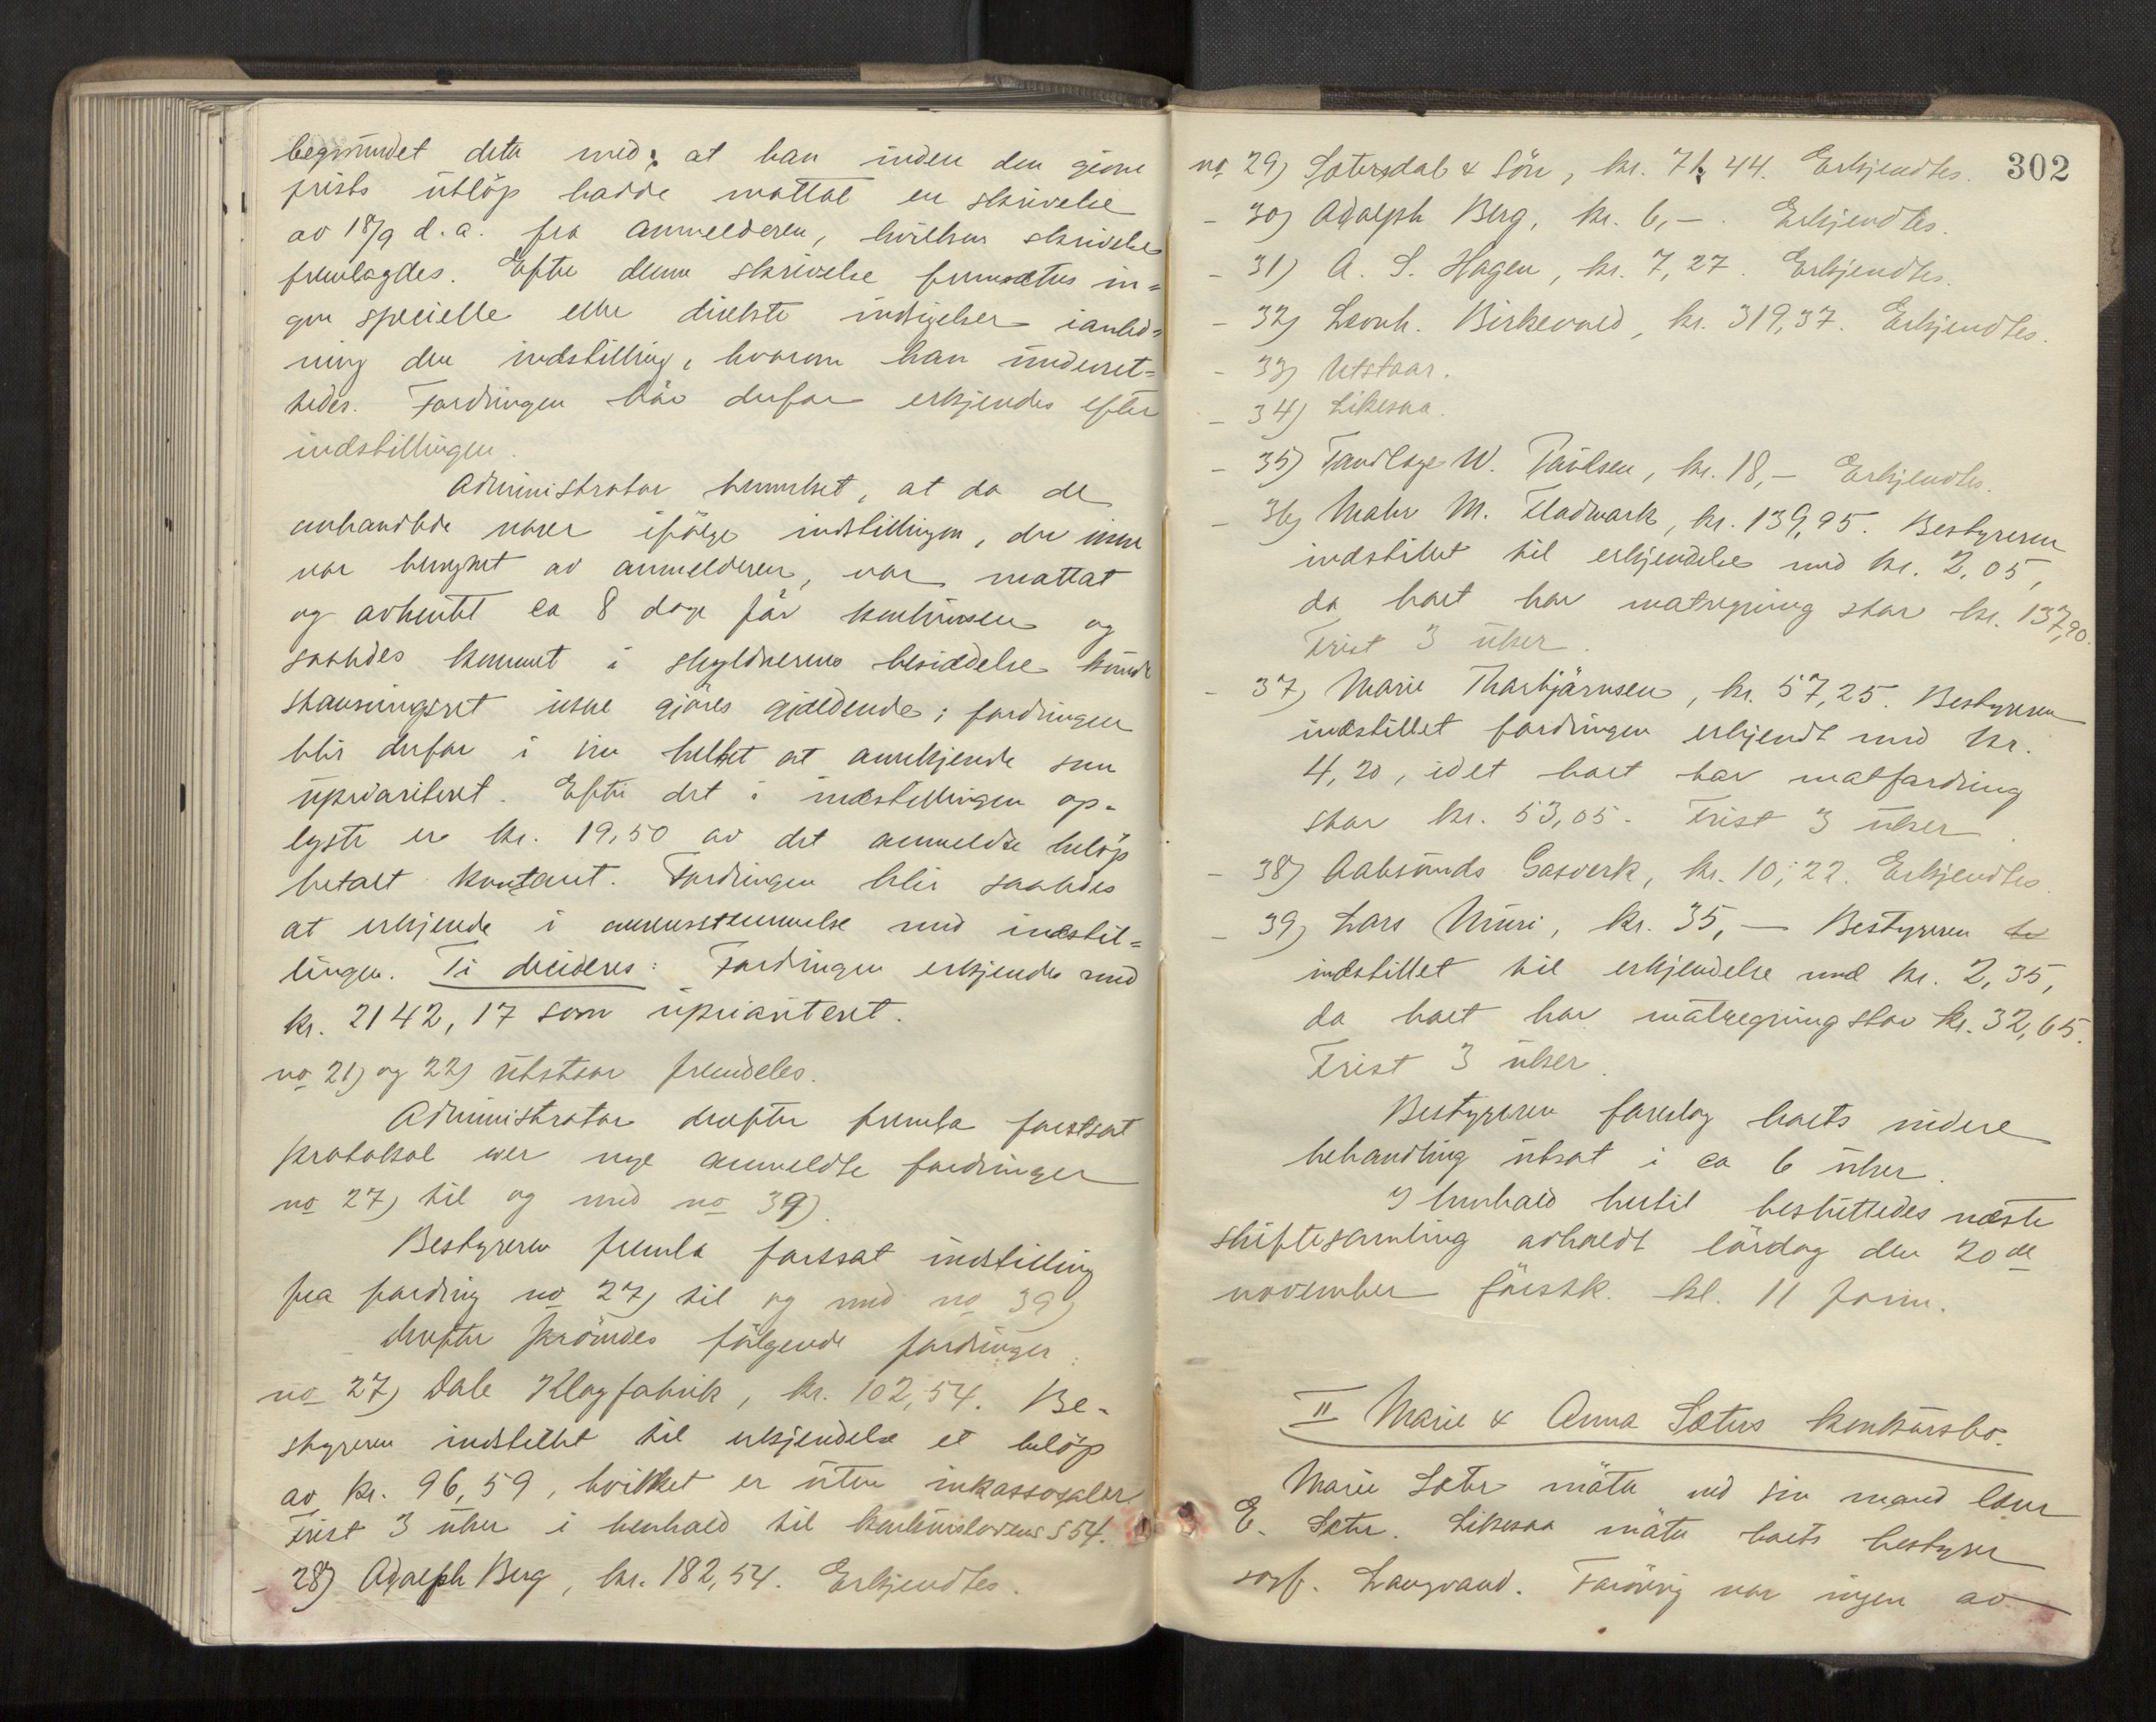 begrundet dette med, at han inden den givne
frists utløp hadde mottat en skrivelse
av 18/9 d.a. fra anmelderen, hvilken skrivelse
fremlagdes. Efter denne skrivelse fremsættes in=
gen specielle eller direkte indsigelser i anled=
ning den indstilling, hvorom han underret=
tedes. Fordringen bör derfor erkjendes efter
indstillingen.
Administrator bemerket, at da de
omhandlede varer ifölge indstillingen, der ikke
var benegtet av anmelderen, var mottat
og avhentet ca 8 dage för konkursen og
saaledes kommet i skyldnerens besiddelse kunde
stansningsret ikke gjöres gjældende; fordringen
blir derfor i sin helhet at anerkjende som
uprioritert. Efter det i indstillingen op-
lyste er kr. 19,50 av det anmeldte belöp
betalt kontant. Fordringen blir saaledes
at erkjende i overensstemmelse med indstil=
lingen. Ti decideres: Fordringen erkjendes med
kr. 2142,17 som uprioritert.
no 21) og 22) utstaar fremdeles.
Administrator derefter fremla fortsat
protokol over nye anmeldte fordringer
no 27) til og med no 39).
Bestyreren fremla fortsat indstilling
fra fordring no 27) til og med no 39)
derefter prövedes fölgende fordringer:
no 27) Dale Klæfabrik, kr. 102,54. Be-
styreren indstillet til erkjendelse et belöp
av kr. 96,59, hvilket er uten inkassosalær.
Frist 3 uker i henhold til konkurslovens § 54.
- 28) Adolph Berg, kr. 182,54. Erkjendtes.
302
no 29) Sætersdal & Sön, kr. 71,44. Erkjendtes.
- 30) Adolph Berg, kr. 6,-. Erkjendtes.
- 31) A. S. Hagen, kr. 7,27. Erkjendtes.
- 32) Leonh. Birkevold, kr. 319,37. Erkjendtes.
- 33) Utstaar.
- 34) Likesaa.
- 35) Tandlæge W. Paulsen, kr. 18,- Erkjendtes.
- 36) Maler M. Fladmark, kr. 139,95. Bestyreren
indstillet til erkjendelse med kr. 2,05,
da boet har motregning stor kr. 137,90.
Frist 3 uker.
- 37) Marie Thorbjörnsen, kr. 57,25. Bestyreren
indstillet fordringen erkjendt med kr.
4,20, idet boet har motfordring
stor kr. 53,05. Frist 3 uker.
- 38) Aalesunds Gasverk, kr. 10,22. Erkjendtes.
- 39) Lars Muri, kr. 35,- Bestyreren
indstillet til erkjendelse med kr. 2,35,
da boet har motregning stor kr. 32,65.
Frist 3 uker.
Bestyreren foreslog boets videre
behandling utsat i ca 6 uker.
I henhold hertil besluttedes næste
skiftesamling avholdt lördag den 20de
november förstk. kl. 11 form.
II Marie & Anna Sæters konkursbo.
Marie Sæter mötte ved sin mand
E. Sæter. Likesaa mötte boets bestyrer
sorf. Langvand. Forövrig var ingen av